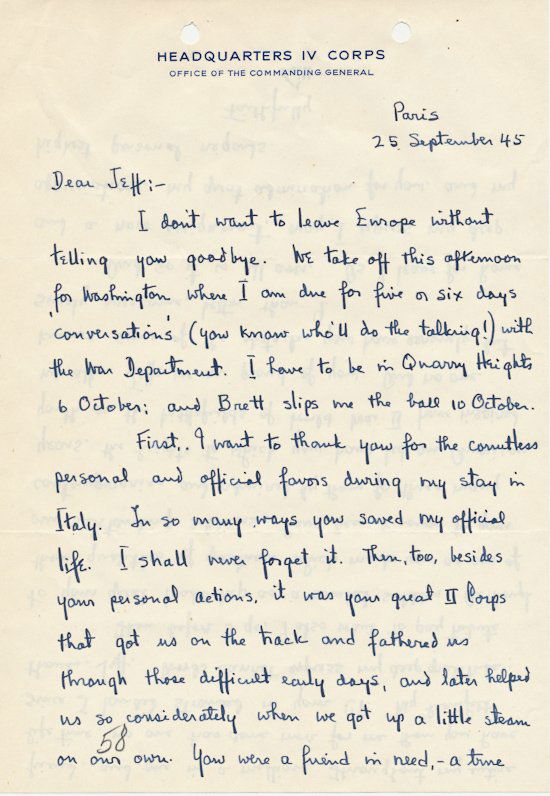 HEADQUARTERS IV CORPS
OFFICE OF THE COMMANDING GENERAL
Paris
25 September 45
Dear Jeff:-
I don't want to leave Europe without
telling you goodbye. We take off this afternoon
for Washington where I am due for five or six days
'conversations' (you know who'll do the talking!) with
the War Department. I have to be in Quarry Heights
6 October; and Brett slips me the ball 10 October.
First, I want to thank you for the countless
personal and official favors during my stay in
Italy. In so many ways you saved my official
life. I shall never forget it. Then, too, besides
your personal actions, it was your great II Corps
that got us on the track and fathered us
through those difficult early days, and later helped
us so considerately when we got up a little steam
on our own. You were a friend in need, - a true
58